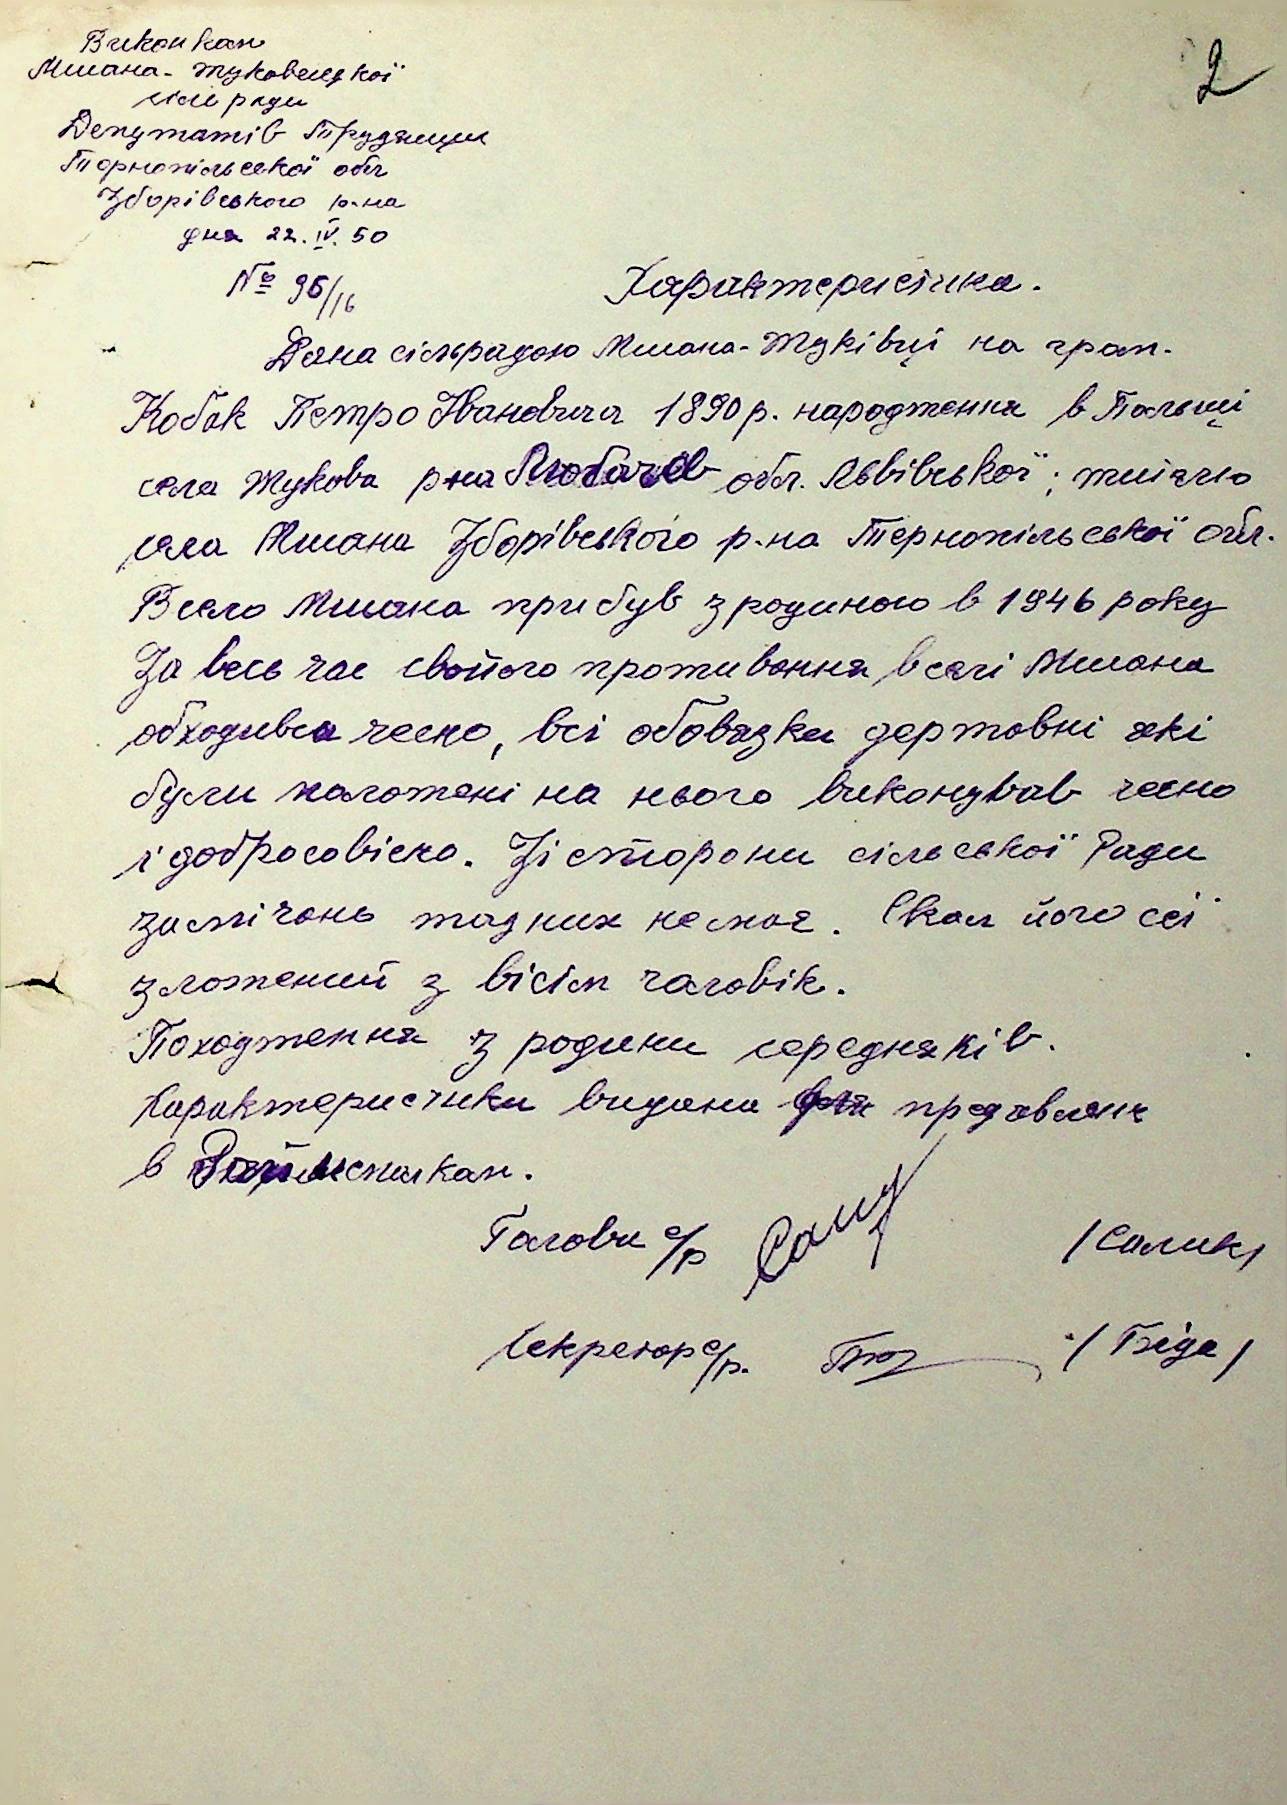 2
Виконком
Млиана-Жуковецкої
сілі ради
Депутатів Трудящих
Тернопільської обл
Зборівського р-на
дня 22.IV.50
№ 95/16
Характеристика.
Дана сільрадою Млиана-Жуківці на гром.
Кобак Петро Івановича 1890 р. народження в Польщі
села Жукова р-на Любачев обл. Львівської; жителю
села Млиана Зборівського р-на Тернопільської обл.
В село Млиана прибув з родиною в 1946 року
За весь час свойого проживання в селі Млиана
обходився чесно, всі обовязки державні які
були наложені на нього виконував чесно
і добросовісно. Зі сторони сільської Ради
замічань жадних немає. Склад його сеї
зложений з вісім чоловік.
Походження з родини середняків.
Характеристика видана для предявленя
в Райвиконком.
Голова с/р (Салик)
Секретар с/р. (Біда)